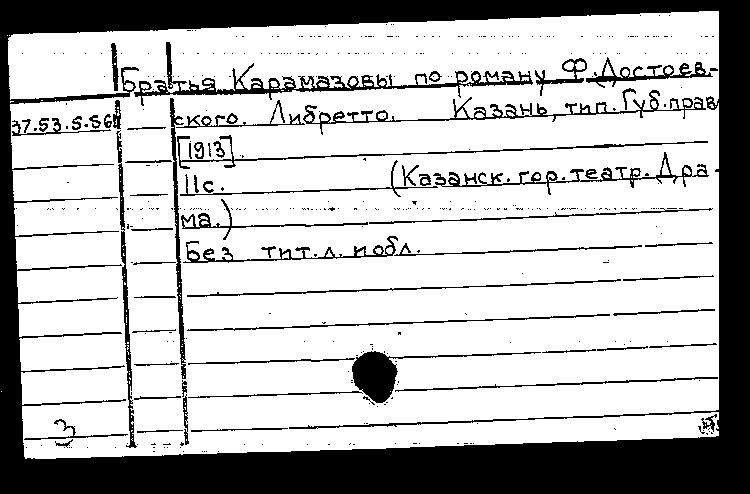 Братья Карамазовы по роману Ф.Достоев-
37.53.5.561 ского. Либретто. Казань, тип. Губ.прав
[1913].
11с. (Казанск.гор.театр.Дра-
ма.)
Без тит.л. и обл.
3